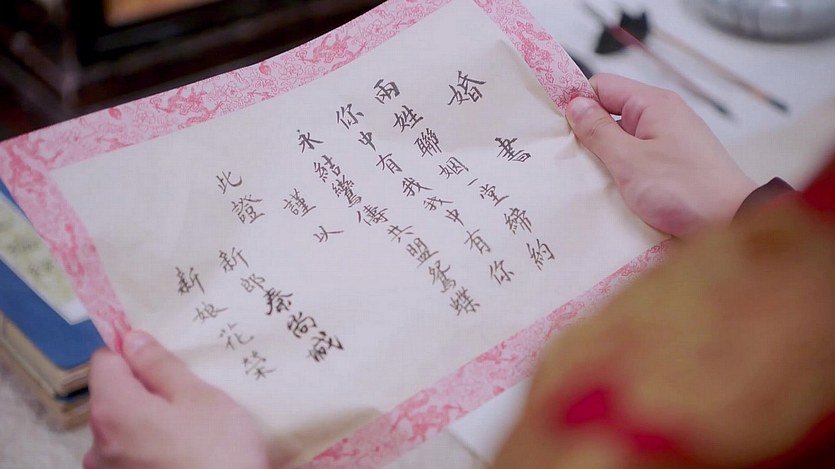 婚書
兩姓聯姻一堂締約
你中有我我中有你
永結鸞儔共盟鴛蝶
謹以
此證
新郎秦尚城
新娘花榮